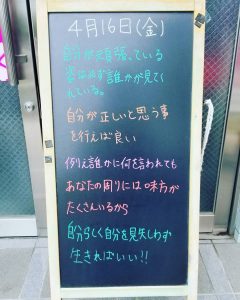 4月16日(金)
自分が頑張っている
姿は必ず誰かが見てく
れている。
自分が正しいと思う事
を行えば良い
例え誰かに何を言われても
あなたの周りには味方が
たくさんいるから
自分らしく自分を見失わず
生きればいい!!